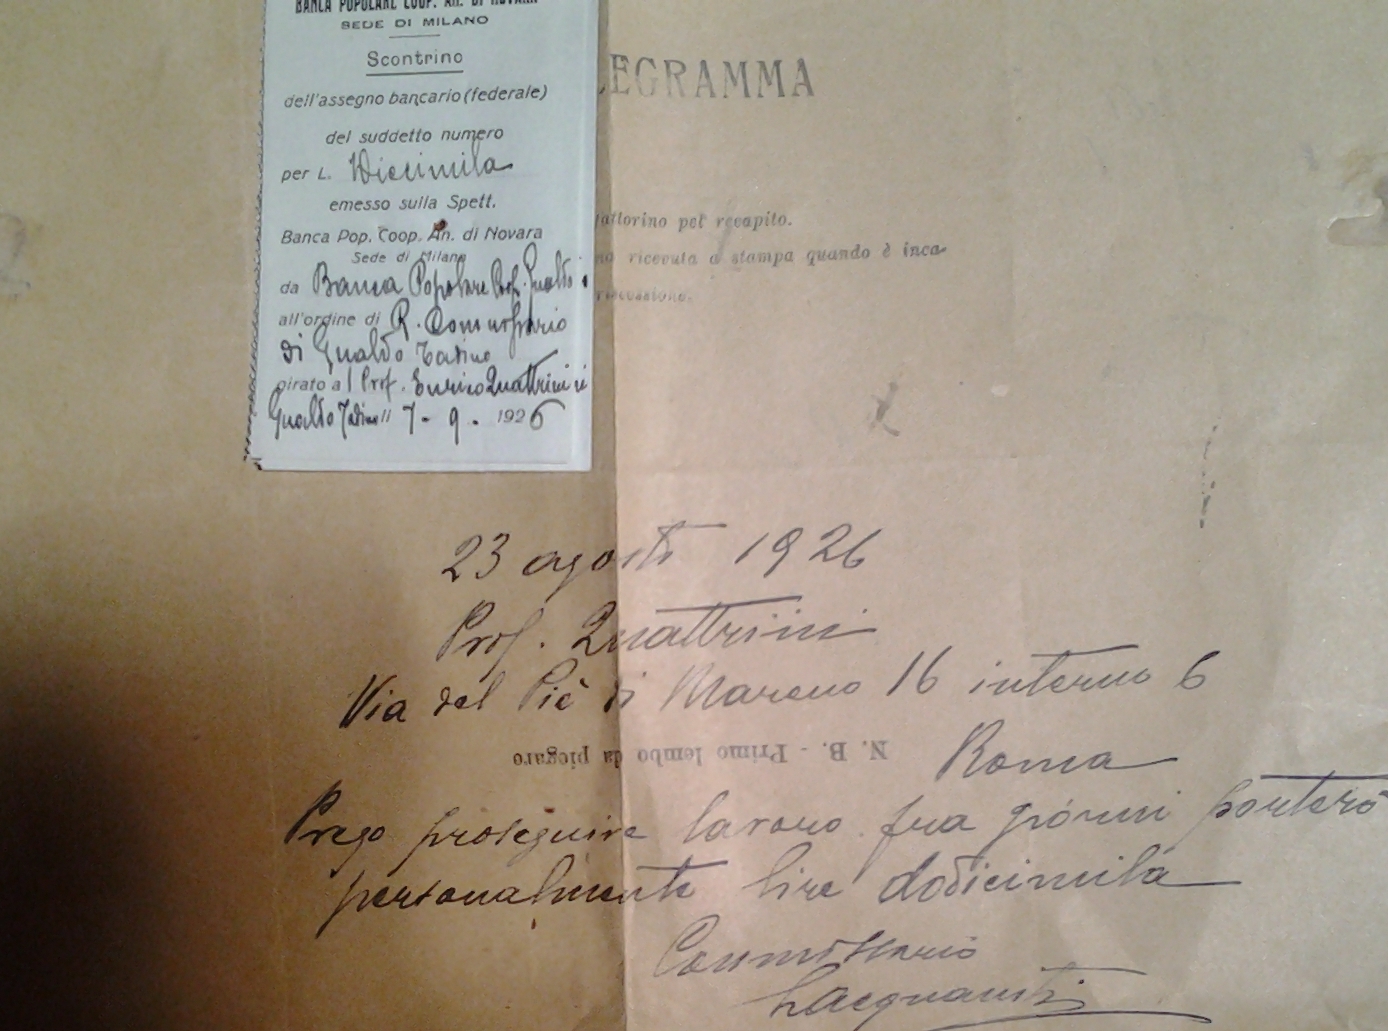 BANCA POPOLARE COOP. AN. DI NOVARA
SEDE DI MILANO
Scontrino
dell'assegno bancario (federale)
del suddetto numero
per L. Diecimila
emesso sulla Spett.
Banca Pop. Coop. An. di Novara
Sede di Milano
da Banca Popolare Coop. Gualdo
all'ordine di R. Commissario
di Gualdo Tadino
girato al Prof. Enrico Quattrini
Gualdo Tadino li 7 - 9 - 1926
EGRAMMA
attorino pel recapito.
ricevuta a stampa quando è inca-
riscossione.
23 agosto 1926
Prof. Quattrini
Via del Piè di Mareno 16 interno 6
N. B. - Primo lembo da piegare
Roma
Prego proseguire lavoro fra giorni porterò
personalmente lire dodicimila
Commissario
Lacquaniti